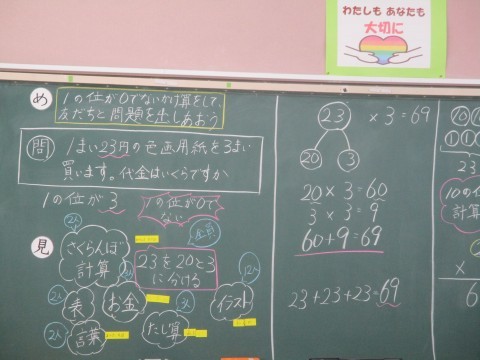 わたしも あなたも
大切に
め
1の位が0でないかけ算をして、
友だちと問題を出しあおう
問
1まい23円の画用紙を3まい
買います。代金はいくらですか
1の位が3
1の位が0で
ない
見
2人
さくらんぼ
計算
全員
23を20と3
に分ける
2人
表
お金
12人
イラスト
2人
言葉
たし算
3人
23 × 3 = 69
20 3
20 × 3 = 60
3 × 3 = 9
60 + 9 = 69
23 + 23 + 23 = 69
10 10
1 1 1
23
10の位
計算
×
6